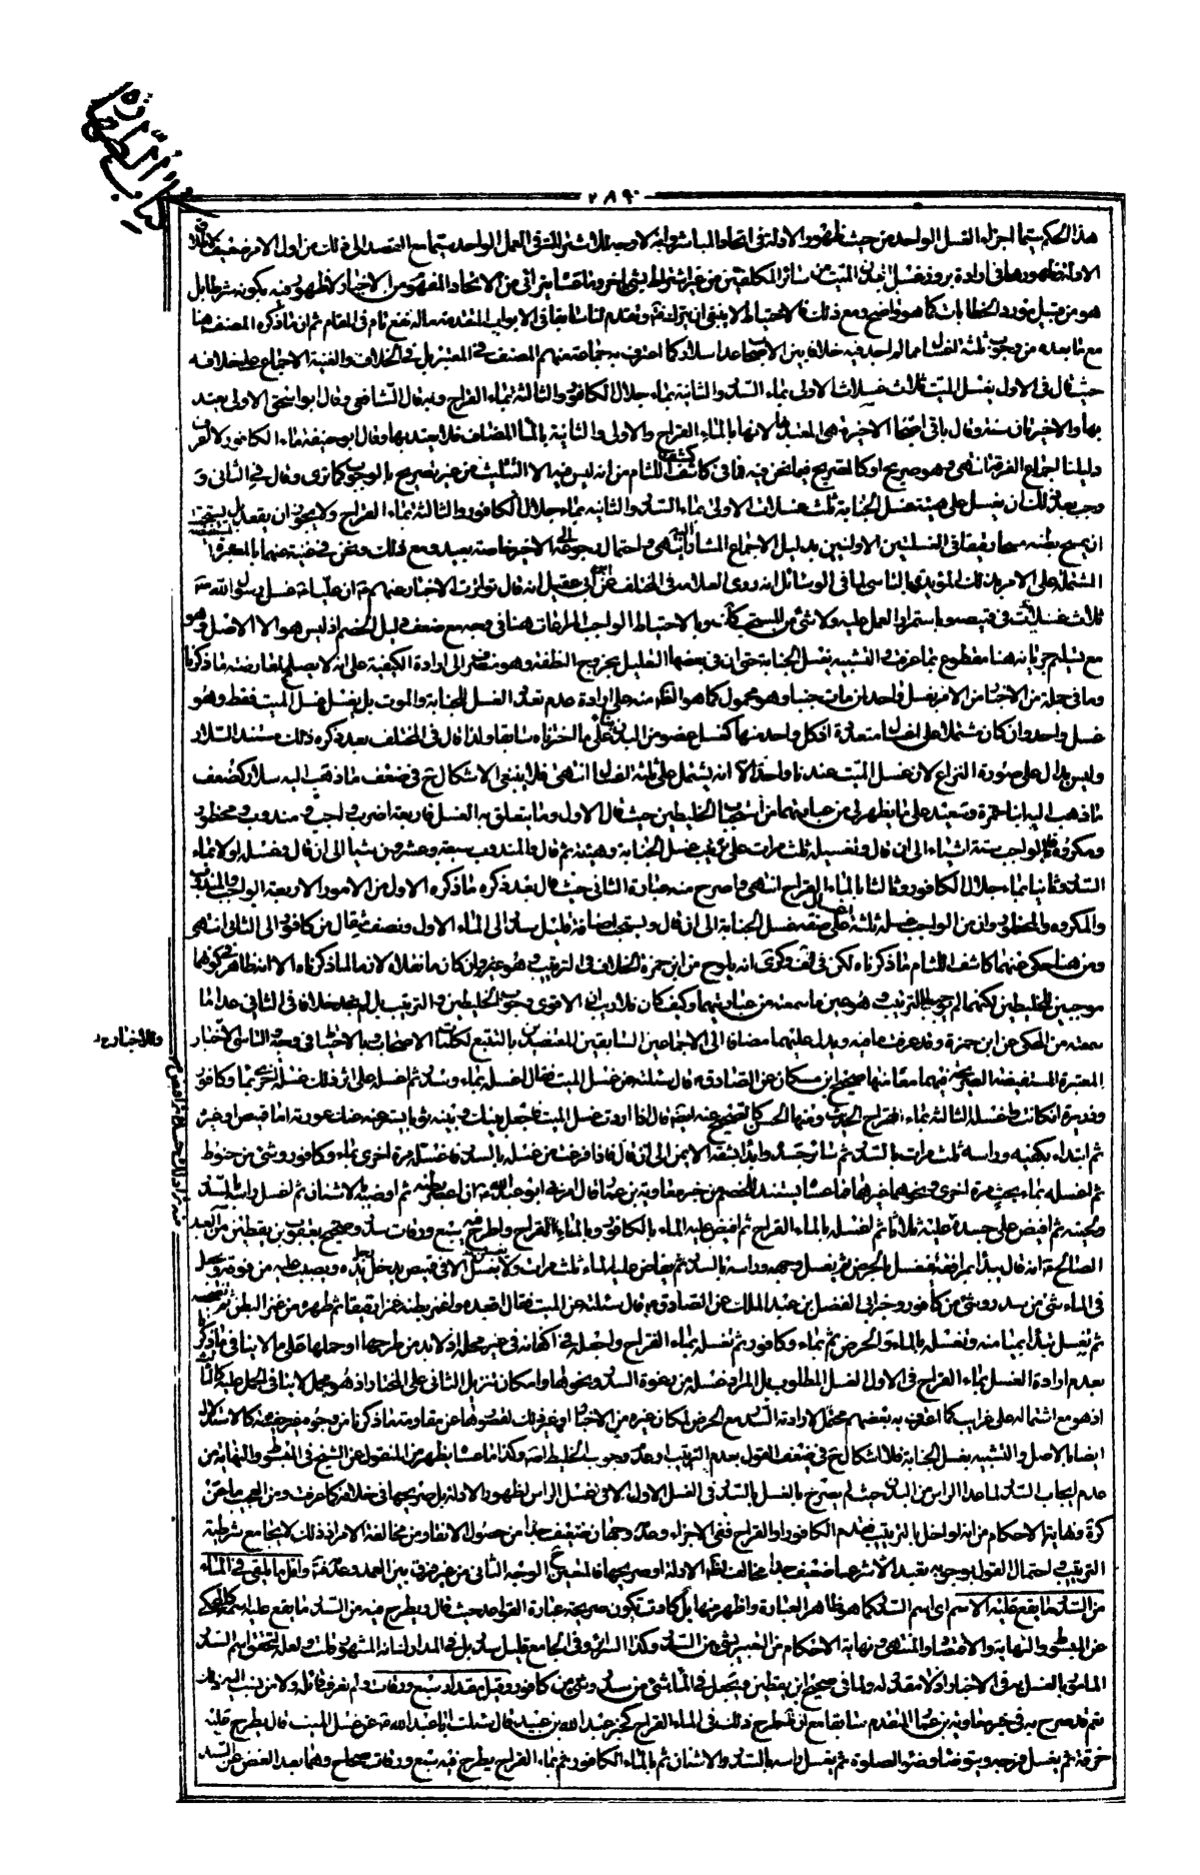 كتاب الطهارة
٢٨٩
هذا الحكم سيما اجزاء الغسل الواحد من حيث ظهور الادلة في اتحاد المباشر وانه لا وجه للاشتراك في العمل الواحد سيما مع القصد الى ذلك من اول الامر ضعيف
الادلة ظهورها في ارادة بروز غسل الميت من سائر المكلفين من غير اشتراط بشئ اخر وما عساه يترائى من الاتحاد المفهوم من الاخبار لا ظهور فيه بكونه شرطا بل
هو من قبيل مورد الخطابات كما هو واضح ومع ذلك فالاحتياط لا ينبغي ان يترك وتقدم لنا سابقا في الابواب المتقدمة ماله نفع تام في المقام ثم ان ما ذكره المصنف هنا
مع ما بعده من وجوب ثلثة اغسال مما لم اجد فيه خلافا بين الاصحاب عدا سلار كما اعترف به جماعة منهم المصنف في المعتبر بل في الخلاف والغنية الاجماع على خلافه
حيث قال في الاول يغسل الميت ثلاث غسلات الاولى بماء السدر والثانية بماء جلال الكافور والثالثة بماء القراح وبه قال الشافعي وقال ابو اسحق الاولى يعتد
بها والاخريان سنة وقال باقي اصحابه الاخيرة هي المعتد بها لانها بالماء القراح والاولى والثانية بالماء المضاف فلا يعتد بها وقال ابو حنيفة ماء الكافور لا اعرفه
دليلنا اجماع الفرقة انتهى وهو صريح او كالصريح فيما نحن فيه فما في كشف اللثام من انه ليس فيه الا التثليث من غير تصريح بالوجوب كما ترى وقال في الثاني و
وجب بعد ذلك ان يغسل على هيئة غسل الجنابة ثلث غسلات الاولى بماء السدر والثانية بماء جلال الكافور والثالثة بماء القراح ولا يجوز ان يقعد بل يستحب
ان يمسح بطنه مسحا رفيقا في الغسلتين الاوليين بدليل الاجماع المشار اليه انتهى واحتمال رجوعه الى الاخير خاصة بعيد ومع ذلك ونحن في غنية عنهما بالمعتبرة
المشتملة على الامر بذلك المؤيدة بالتاسي لما في الوسائل انه روى العلامة في المختلف عن ابن ابي عقيل انه قال تواترت الاخبار عنهم ع ان عليا ع غسل رسول الله ص
ثلاث غسلات في قميصه وباستمرار العمل عليه ولا شئ من المستحب كك وبالاحتياط الواجب المراعات هنا في وجه مع ضعف دليل الخصم اذ ليس هو الا الاصل وهو
مع تسليم جريانه هنا مقطوع بما عرفت والتشبيه بغسل الجنابة حتى ان في بعضها التعليل بخروج النطفة وهو منصرف الى ارادة الكيفية على انه لا يصلح لمعارضة ما ذكرنا
وما في جملة من الاخبار من الامر بغسل واحد لمن مات جنبا وهو محمول كما هو الظ منه على ارادة عدم تعدد الغسل للجنابة والموت بل يغسل غسل الميت فقط وهو
غسل واحد وان كان مشتملا على اغسال متعددة اذ كل واحد منها كغسل عضو من البدن على ما اخترناه سابقا ولذا قال في المختلف بعد ذكره ذلك مستند السلار
وليس بدال على صورة النزاع لان غسل الميت عندنا واحد الا انه يشتمل على ثلثة اغسال انتهى فلا ينبغي الاشكال ح في ضعف ما ذهب اليه سلار كضعف
ما ذهب اليه ابنا حمزة وسعيد على ما يظهر لي من عبارتهما من استحباب الخليطين حيث قال الاول وما يتعلق به الغسل فاربعة اضرب واجب ومندوب ومحظور
ومكروه فالواجب ستة اشياء الى ان قال وتغسيله ثلث مرات على ترتيب غسل الجنابة وهيئته ثم قال والمندوب سبعة وعشرون شيئا الى ان قال وغسله اولا بماء
السدر وثانيا بماء جلال الكافور وثالثا بالماء القراح انتهى واصرح منه عبارة الثاني حيث قال بعد ذكره ما ذكره الاول من الامور الاربعة الواجب والمندوب
والمكروه والمحظور وان من الواجب غسله ثلثة اغسال على صفة غسل الجنابة الى ان قال ويستحب اضافة قليل سدر الى الماء الاول ونصف مثقال من كافور الى الثاني انتهى
ومن هنا حكى عنهما كاشف اللثام ما ذكرناه لكن في لف وكرى انه يلوح من ابن حمزة الخلاف في الترتيب وهو غيره وان كان ما نقلاه لازما لما ذكرناه الا انه ظاهر في كونهما
موجبين للخليطين لكنهما لم يوجبا الترتيب وهو عين ما سمعته من عبارتهما وكيف كان فلا ريب في ان الاقوى وجوب الخليطين والترتيب بل لم نجد خلافا في الثاني عدا ما
سمعته من المحكي عن ابن حمزة وقد عرفت ما فيه ويدل عليهما مضافا الى الاجماعين السابقين المعتضدين بالتتبع لكلمات الاصحاب بالاحتياط في وجه التاسي الاخبار
والاخبار
المعتبرة المستفيضة الصريحة فيهما معا منها صحيح ابن مسكان عن الصادق ع قال سئلته عن غسل الميت فقال اغسله بماء وسدر ثم اغسله على اثر ذلك غسلة اخرى بماء وكافور
وذريرة ان كانت واغسله الثالثة بماء القراح الحديث ومنها الحسن كالصحيح عنه ايضا قال اذا اردت غسل الميت فاجعل بينك وبينه ثوبا يستر عنه عنك عورته اما قميص او غيره
ثم ابتداء بكفيه وراسه ثلث مرات بالسدر ثم سائر جسده وابدأ بشقه الايمن الى ان قال فاذا فرغت من غسله بالسدر فاغسله مرة اخرى بماء وكافور وشئ من حنوط
ثم اغسله بماء بحت مرة اخرى ونحوهما غيرهما فما عساه يستند للخصم من خبر معاوية بن عمار قال امرني ابو عبد الله ع ان اعصر بطنه ثم اوضيه بالاشنان ثم اغسل راسه بالسدر
ولحييه ثم افيض على جسده منه ثلاثا ثم اغسله بالماء القراح ثم افيض عليه الماء بالكافور وبالماء القراح واطرح فيه سبع ورقات سدر وصحيح يعقوب بن يقطين عن العبد
الصالح ع انه قال يبدأ بمرافقه فيغسل بالحرض ثم يغسل وجهه وراسه بالسدر ثم يفاض عليه الماء ثلث مرات ولا يغسل الا في قميص يدخل رجل يده ويصب عليه من فوقه ويجعل
في الماء شئ من سدر وشئ من كافور وخبر ابي العباس الفضل بن عبد الملك عن الصادق ع قال سئلته عن الميت فقال اقعده واغمز بطنه غمزا رفيقا ثم طهره من غمز البطن ثم تضجعه
ثم تغسله تبدأ بميامنه وتغسله بالماء والحرض ثم بماء وكافور ثم تغسله بماء القراح واجعله في اكفانه في غير محله اذ لا بد من طرحها او حملها على ما لا ينافي ما ذكرنا
بعدم ارادة الغسل بماء القراح في الاول الغسل المطلوب بل المراد غسله من رغوة السدر ونحوها وامكان تنزيل الثاني على المختار اذ هو مجمل لا ينافي الحمل عليه كالثالث
اذ هو مع اشتماله على غرائب كما اعترف به بعضهم محتمل لارادة السدر مع الحرض لمكان غيره من الاخبار او غير ذلك لقصورها عن مقاومة ما ذكرنا من وجوه غير خفية كالاستدلال
ايضا بالاصل والتشبيه بغسل الجنابة فلا اشكال ح في ضعف القول بعدم الترتيب وعدم وجوب الخليط اصلا وكذا ما عساه يظهر من المنقول عن الشيخ في المبسوط والنهاية من
عدم ايجاب السدر لما عدا الراس من البدن حيث لم يصرح بالغسل بالسدر في الغسل الاول الا في غسل الراس لظهور الادلة بل صريحها في خلافه كما عرفت ومن العجب ما عن
كرة ونهاية الاحكام من انه لو اخل بالترتيب فقدم الكافور او القراح ففي الاجزاء وعدمه وجهان ضعيف جدا من حصول الانقاء ومن مخالفة الامر اذ ذلك لا يجامع شرطية
الترتيب واحتمال القول بوجوبه تعبدا لا شرطا ضعيف جدا مخالف لظ الادلة او صريحها فالمتعين ح الوجه الثاني من غير فرق بين العمد وعدمه واقل ما يلقى في الماء
من السدر ما يقع عليه الاسم اي اسم السدر كما هو ظاهر العبارة واظهر منها بل كادت تكون صريحة عبارة القواعد حيث قال ويطرح فيه من السدر ما يقع عليه اسمه كالمحكي
عن المبسوط والنهاية والاقتصاد والمنتهى ونهاية الاحكام من التعبير بشئ من السدر وكذا السرائر وفي الجامع قليل سدر بل في المدارك انه المشهور قلت ولعله لتحقق اسم السدر
المامور بالغسل به في الاخبار اولا مقدار له ولما في صحيح ابن يقطين ويجعل في الماء شئ من سدر وشئ من كافور وقيل مقدار سبع ورقات ولم نعرف قائله ولا من نسب اليه
نعم قد صرح به في خبر معاوية بن عمار المتقدم سابقا مع ان طرح ذلك في الماء القراح كخبر عبد الله بن عبيد قال سئلت ابا عبد الله ع عن غسل الميت قال يطرح عليه
خرقة ثم يغسل فرجه ويوضأ وضوء الصلوة ثم يغسل راسه بالسدر والاشنان ثم بالماء والكافور ثم بماء القراح يطرح فيه سبع ورقات صحاح وهما بعد الغض عن السند